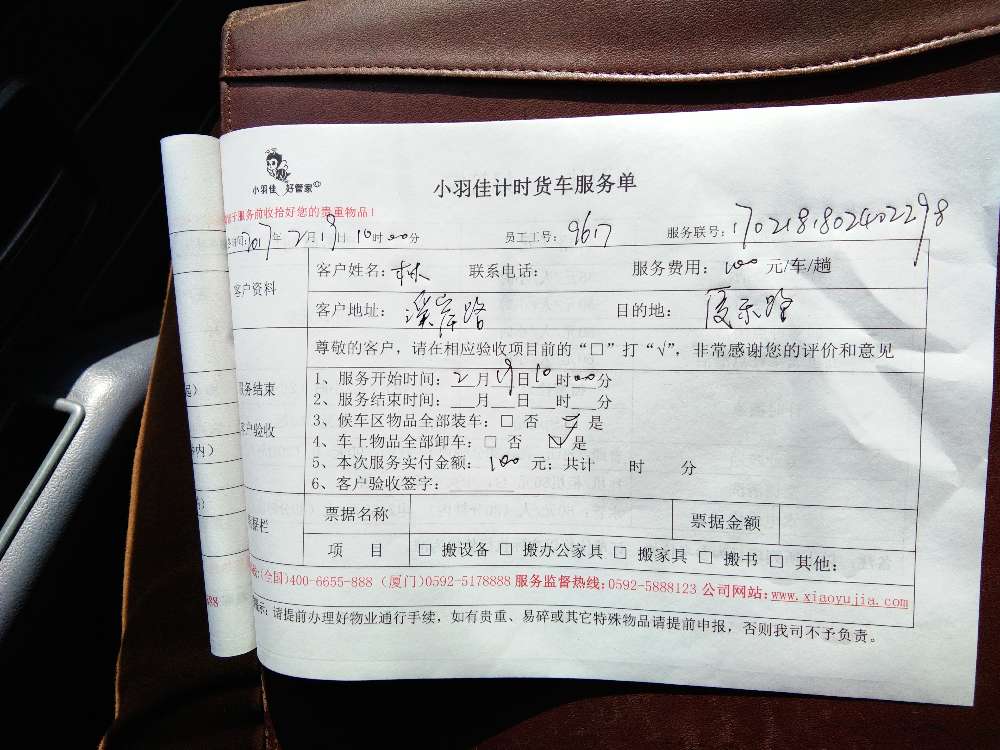 小羽佳 好管家
小羽佳计时货车服务单
服务前收拾好您的贵重物品！
时间：2017年2月19日10时00分 员工工号：9617 服务联号：1702181802402298
客户资料
客户姓名：林 联系电话： 服务费用：100元/车/趟
客户地址：溪岸路 目的地：厦禾路
尊敬的客户，请在相应验收项目前的“□”打“√”，非常感谢您的评价和意见
服务结束
客户验收
1、服务开始时间：2月19日10时00分
2、服务结束时间：___月___日___时___分
3、候车区物品全部装车：□ 否 ☑ 是
4、车上物品全部卸车：□ 否 ☑ 是
5、本次服务实付金额：100元；共计 时 分
6、客户验收签字：
票据名称 票据金额
项 目 □ 搬设备 □ 搬办公家具 □ 搬家具 □ 搬书 □ 其他：
(全国)400-6655-888 (厦门)0592-5178888 服务监督热线：0592-5888123 公司网站：www.xiaoyujia.com
提示：请提前办理好物业通行手续，如有贵重、易碎或其它特殊物品请提前申报，否则我司不予负责。